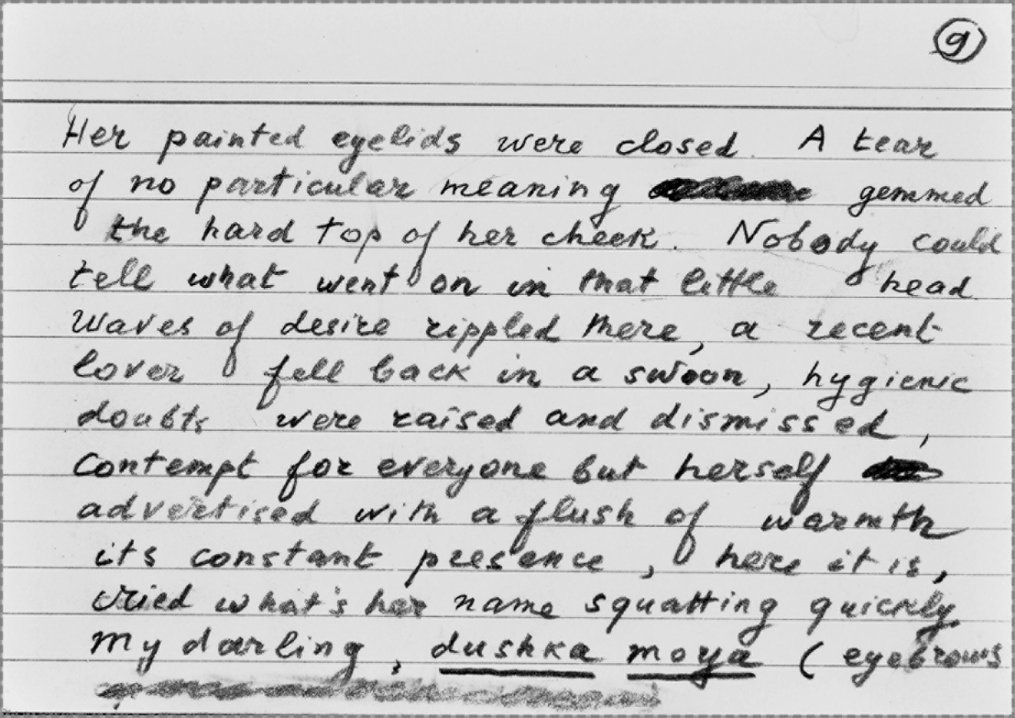 9
Her painted eyelids were closed. A tear
of no particular meaning gemmed
the hard top of her cheek. Nobody could
tell what went on in that little head
Waves of desire rippled there, a recent
lover fell back in a swoon, hygienic
doubts were raised and dismissed,
contempt for everyone but herself
advertised with a flush of warmth
its constant presence, here it is,
cried what's her name squatting quickly
My darling, dushka moya (eyebrows